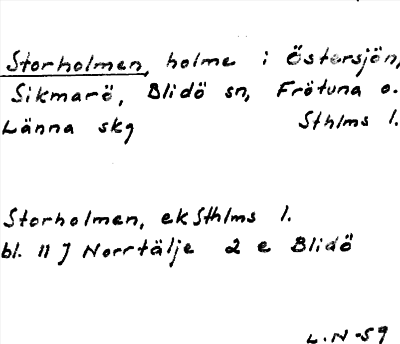 Storholmen, holme i Östersjön,
Sikmarö, Blidö sn, Frötuna o.
Länna skg Sthlms l.
Storholmen, ek Sthlms l.
bl. 11 J Norrtälje 2 e Blidö
L.N-59